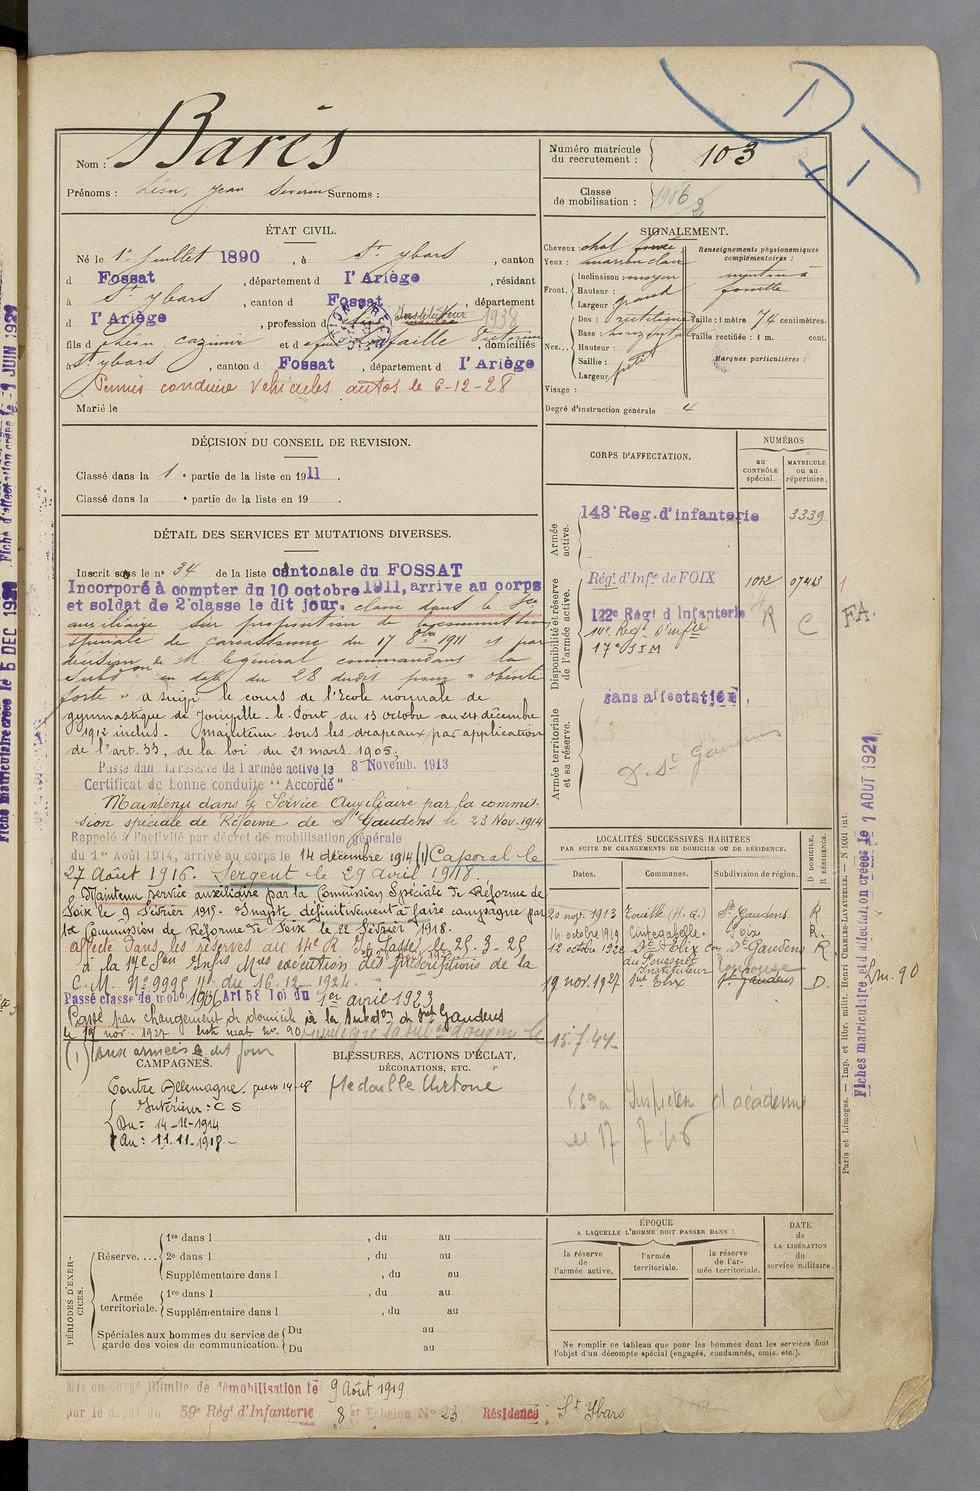 Nom : Barès
Prénoms : Léon, Jean Severin Surnoms :
Numéro matricule du recrutement : 103
Classe de mobilisation : 1906/2
ÉTAT CIVIL.
Né le 1er juillet 1890, à St Ybars, canton
d Fossat, département d l'Ariège, résidant
à St Ybars, canton d Fossat, département
d l'Ariège, profession d Instituteur 1934
fils d et d , domiciliés
à St Ybars, canton d Fossat, département d l'Ariège
Permis conduire véhicules autos le 6-12-28
Marié le
SIGNALEMENT.
Cheveux : chat foncé
Yeux : marron clair
Front. Inclinaison moyen
Hauteur :
Largeur grand
Nez. Dos : rectiligne
Base : horizontale
Hauteur :
Saillie : petit
Largeur
Renseignements physionomiques complémentaires :
menton à
fossette
Taille : 1 mètre 74 centimètres.
Taille rectifiée : 1 m. cent.
Marques particulières :
Visage :
Degré d'instruction générale 4
DÉCISION DU CONSEIL DE REVISION.
Classé dans la 1e partie de la liste en 1911.
Classé dans la e partie de la liste en 19 .
DÉTAIL DES SERVICES ET MUTATIONS DIVERSES.
Inscrit sous le no 34 de la liste cantonale du FOSSAT
Incorporé à compter du 10 octobre 1911, arrive au corps
et soldat de 2e classe le dit jour. classé dans le Sce
auxiliaire sur proposition de la commission
spéciale de Carcassonne du 17 8bre 1911 et par
décision de M. le général commandant la
Subdon en date du 28 dudit pour "obésité
forte" a suivi le cours de l'Ecole normale de
gymnastique de Joinville-le-Pont du 13 octobre au 24 décembre
1912 inclus. Maintenu sous les drapeaux par application
de l'art. 33, de la loi du 21 mars 1905.
Passé dans la réserve de l'armée active le 8 Novemb. 1913
Certificat de bonne conduite "Accordé"
Maintenu dans le Service Auxiliaire par la commis-
sion spéciale de Réforme de St Gaudens le 23 Nov. 1914
Rappelé à l'activité par décret de mobilisation générale
du 1er Août 1914, arrivé au corps le 14 décembre 1914 (1) Caporal le
27 Août 1916. Sergent le 29 avril 1918.
Maintenu service auxiliaire par la Commission Spéciale de Réforme de
Foix le 9 février 1915. Inapte définitivement à faire campagne par
la Commission de Réforme de Foix le 22 Février 1918.
affecté dans les réserves au 14e R I le 25-3-25
à la 17e Son Infrs Mres exécution des prescriptions de la
C.M. No 9995 du 16-12-1924.
Passé classe de mobon 1906 Art 58 loi du 1er avril 1923
Passé par changement de domicile à la Subdon de Saint Gaudens
le 19 nov. 1927 liste mat no 90
15.7.47
(1) aux armées le dit jour
CORPS D'AFFECTATION.
NUMÉROS
au CONTRÔLE spécial.
MATRICULE ou au répertoire.
Armée active.
143e Reg. d'infanterie 3339
Disponibilité et réserve de l'armée active.
Régt. d'Infie de FOIX 1012 07413
122e Régt d'Infanterie R C F.A.
14e Regt d'Infie
17e S I M
Armée territoriale et sa réserve.
sans affectation.
D. St Gaudens
LOCALITÉS SUCCESSIVES HABITÉES
PAR SUITE DE CHANGEMENTS DE DOMICILE OU DE RÉSIDENCE.
Dates. Communes. Subdivision de région. D. DOMICILE. R. RÉSIDENCE.
20 nov. 1913 Touille (H.G.) St Gaudens R
14 octobre 1919 Cintegabelle. Foix R.
12 octobre 1922 Ste Foix St Gaudens R
Instituteur
19 nov. 1927 St Gaudens D.
Lm. 90
Inspecteur d'académie
CAMPAGNES.
Contre Allemagne. guerre 14-18
Intérieur : C S
Du : 14-12-1914
Au : 11.11-1918.
BLESSURES, ACTIONS D'ÉCLAT, DÉCORATIONS, ETC.
Medaille
PÉRIODES D'EXERCICES.
Réserve.... 1re dans l , du au
2e dans l , du au
Supplémentaire dans l , du au
Armée territoriale. 1re dans l , du au
Supplémentaire dans l , du au
Spéciales aux hommes du service de garde des voies de communication. Du au
Du au
ÉPOQUE
A LAQUELLE L'HOMME DOIT PASSER DANS :
la réserve de l'armée active.
l'armée territoriale.
la réserve de l'armée territoriale.
DATE DE LA LIBÉRATION du service militaire.
Ne remplir ce tableau que pour les hommes dont les services font
l'objet d'un décompte spécial (engagés, condamnés, omis, etc.).
Mis en congé illimité de démobilisation le 9 Août 1919
par le dépôt du 59e Régt d'Infanterie 8e Echelon No 23 Résidence St Ybars
Paris et Limoges. — Imp. et libr. milit. Henri CHARLES-LAVAUZELLE. — N 1001 int.
Fiches matriculaire et d'affectation créées le 1 AOUT 1921
Fiche matriculaire créée le 5 DEC 192
Fiche d'affectation créée le -1 JUIN 192